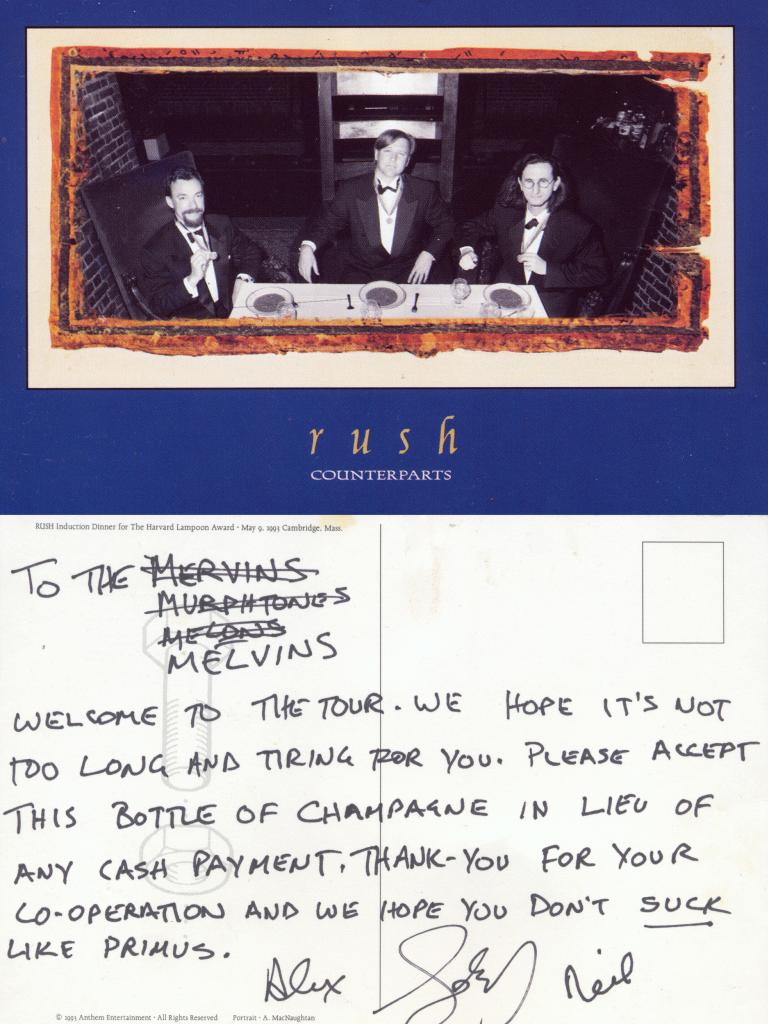 rush
COUNTERPARTS
RUSH Induction Dinner for The Harvard Lampoon Award · May 9, 1993 Cambridge, Mass.
TO THE MERVINS
MURPHTONES
MELONS
MELVINS
WELCOME TO THE TOUR. WE HOPE IT'S NOT
TOO LONG AND TIRING FOR YOU. PLEASE ACCEPT
THIS BOTTLE OF CHAMPAGNE IN LIEU OF
ANY CASH PAYMENT. THANK-YOU FOR YOUR
CO-OPERATION AND WE HOPE YOU DON'T SUCK
LIKE PRIMUS.
Alex Geddy Neil
© 1993 Anthem Entertainment · All Rights Reserved Portrait - A. MacNaughtan